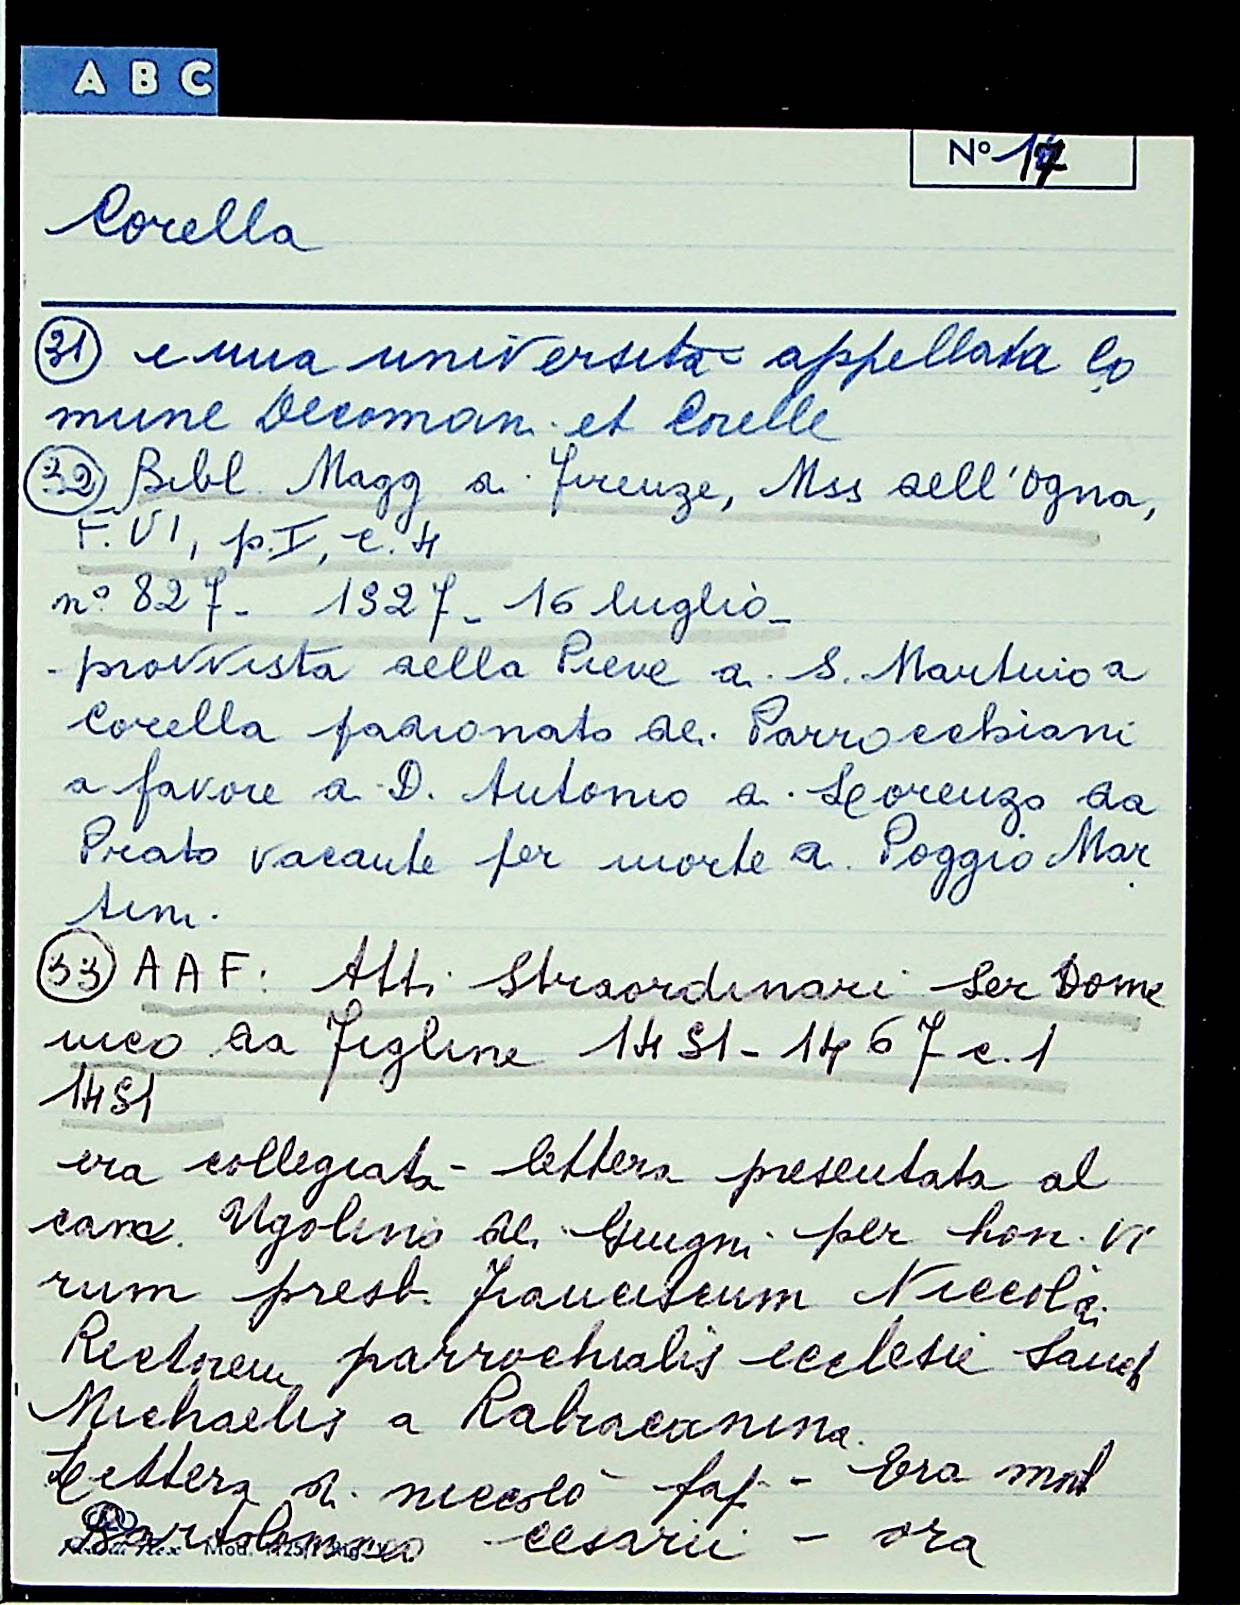 A B C
Nº 17
Corella
31 e una università appellata Co
mune Decoman. et Corelle
32 Bibl. Magg di Firenze, Mss dell'Ogna,
F. VI, p. I, c. 4
nº 827 - 1527 - 16 luglio -
- provvista della Pieve di S. Martino a
Corella padronato dei Parrocchiani
a favore di D. Antonio di Lorenzo da
Prato vacante per morte di Poggio Mar
tini.
33 AAF: Atti Straordinari Ser Dome
nico da Figline 1451-1467 c. 1
1451
era collegiata - lettera presentata al
can. Ugolino dei Giugni per hon. vi
rum presb. Franciscum Niccolai
Rectorem parrochialis ecclesie Sanct
Michaelis a Rabiacanina.
Lettera di niccolò pap - Era mort
Bartolomeo cesarii - ora